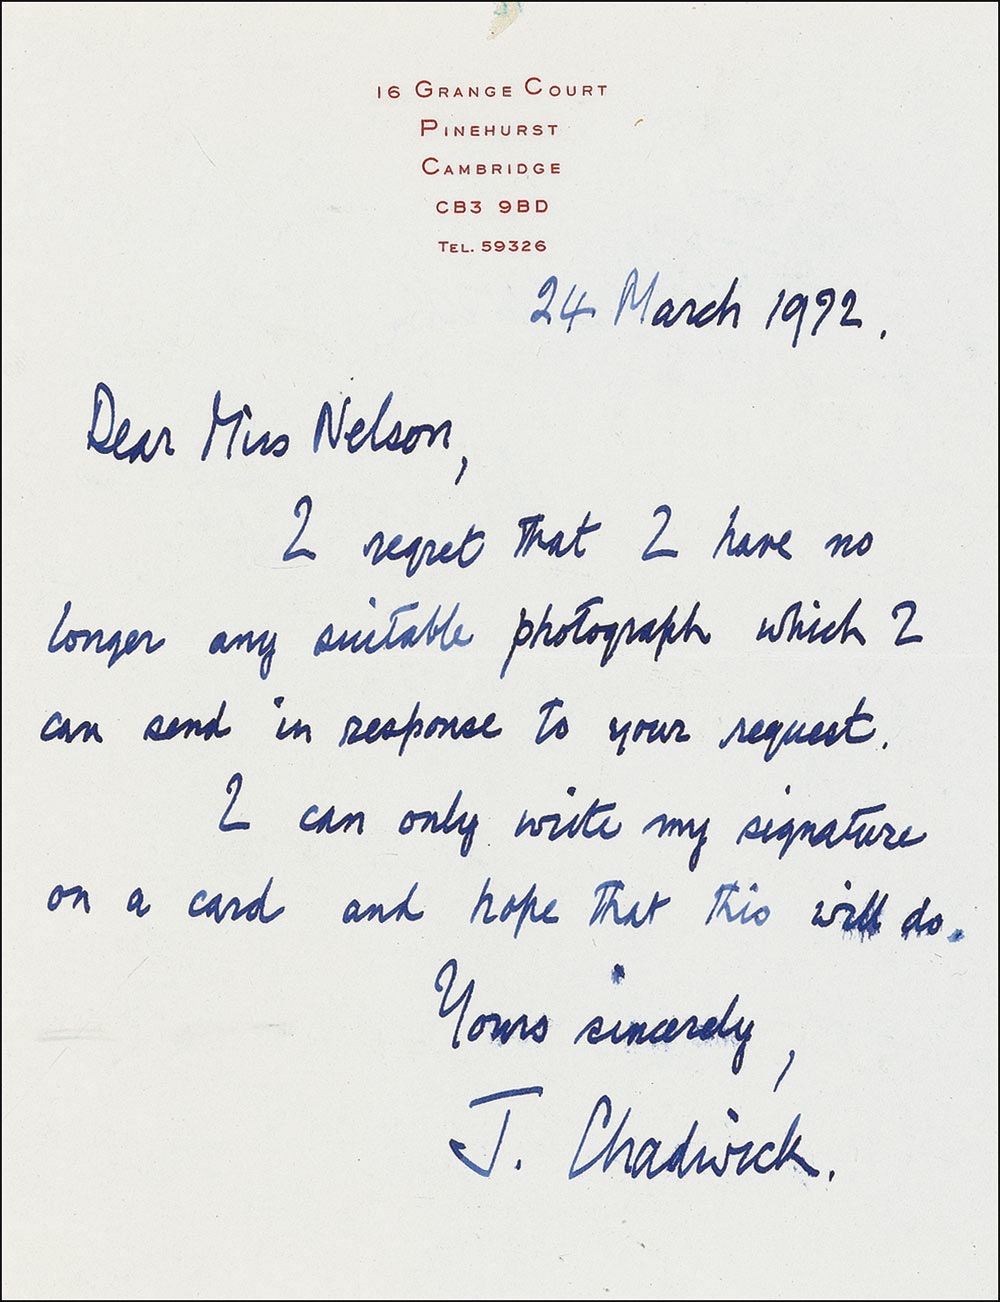 16 Grange Court
Pinehurst
Cambridge
CB3 9BD
Tel. 59326
24 March 1972.
Dear Miss Nelson,
I regret that I have no
longer any suitable photograph which I
can send in response to your request.
I can only write my signature
on a card and hope that this will do.
Yours sincerely,
J. Chadwick.